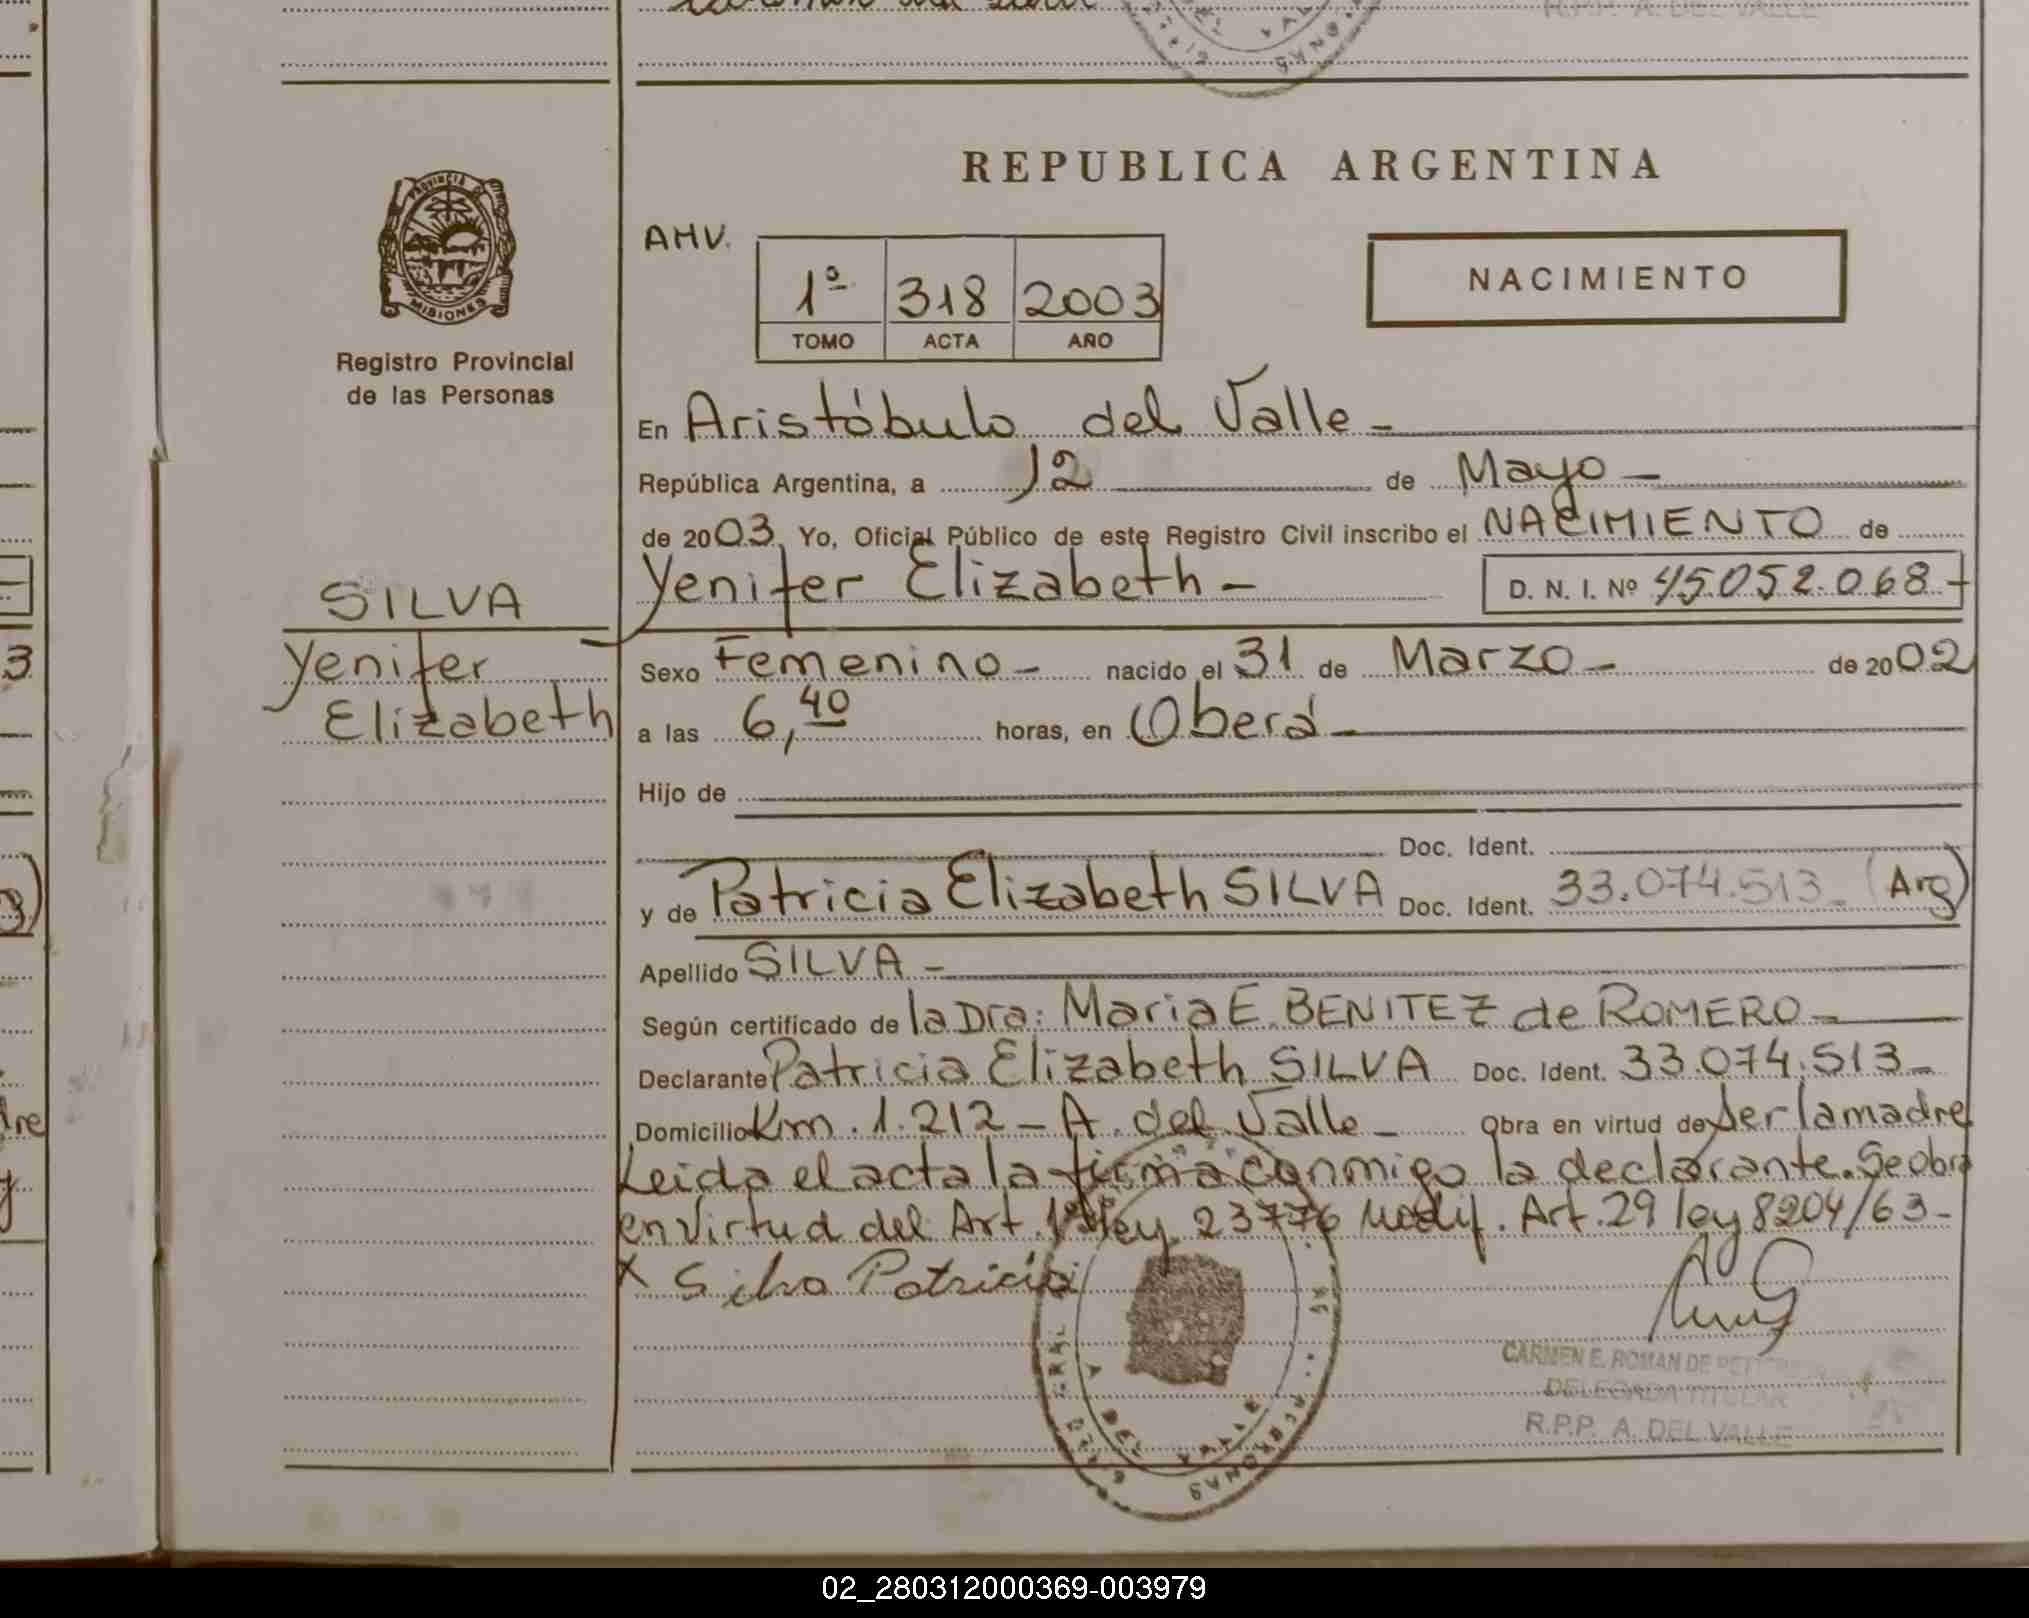 R.P.P. A. DEL VALLE
PROVINCIA DE
MISIONES
Registro Provincial
de las Personas
REPUBLICA ARGENTINA
AHV.
1º 318 2003
TOMO ACTA AÑO
NACIMIENTO
En Aristóbulo del Valle -
República Argentina, a 12 de Mayo -
de 2003 Yo, Oficial Público de este Registro Civil inscribo el NACIMIENTO de
Yenifer Elizabeth - D. N. I. Nº 45.052.068 -
SILVA
Yenifer
Elizabeth
Sexo Femenino - nacido el 31 de Marzo - de 2002
a las 6,40 horas, en Oberá -
Hijo de
Doc. Ident.
y de Patricia Elizabeth SILVA Doc. Ident. 33.074.513 - (Arg)
Apellido SILVA -
Según certificado de la Dra: Maria E. BENITEZ de ROMERO -
Declarante Patricia Elizabeth SILVA Doc. Ident. 33.074.513 -
Domicilio Km. 1.212 - A. del Valle - Obra en virtud de ser la madre
Leida el acta la firma conmigo la declarante. Se obra
en virtud del Art. 1º ley 23776 Modif. Art. 29 ley 8204/63 -
X Silva Patricia
CARMEN E. ROMAN DE
DELEGADA TITULAR
R.P.P. A. DEL VALLE
A. DEL VALLE
PERSONAS
02_280312000369-003979